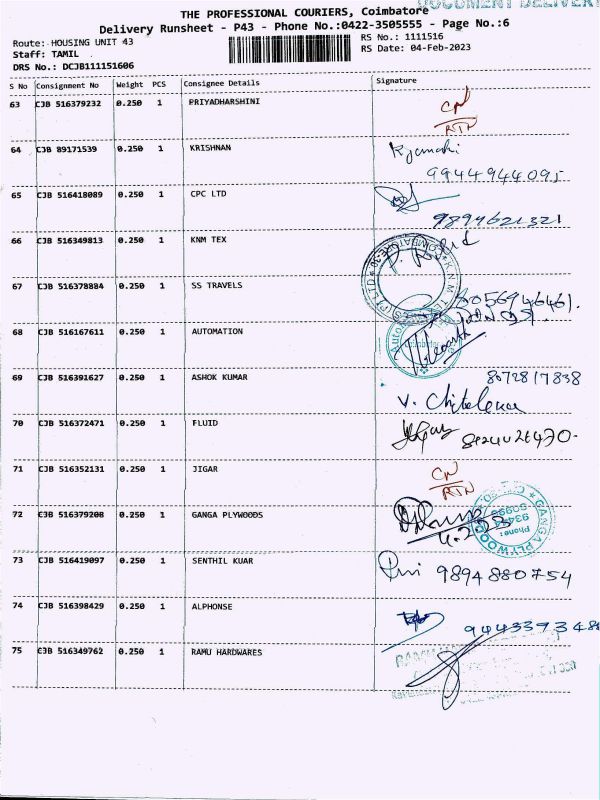 DOCUMENT DELIVERY
THE PROFESSIONAL COURIERS, Coimbatore
Delivery Runsheet - P43 - Phone No.:0422-3505555 - Page No.:6
Route: HOUSING UNIT 43
RS No.: 1111516
Staff: TAMIL
RS Date: 04-Feb-2023
DRS No.: DCJB111151606
S No Consignment No Weight PCS Consignee Details Signature
63 CJB 516379232 0.250 1 PRIYADHARSHINI
RTN
64 CJB 89171539 0.250 1 KRISHNAN
9944944095
65 CJB 516418089 0.250 1 CPC LTD
9894621321
66 CJB 516349813 0.250 1 KNM TEX
67 CJB 516378884 0.250 1 SS TRAVELS
8056946461.
68 CJB 516167611 0.250 1 AUTOMATION
69 CJB 516391627 0.250 1 ASHOK KUMAR
8072817838
70 CJB 516372471 0.250 1 FLUID
71 CJB 516352131 0.250 1 JIGAR
RTN
72 CJB 516379208 0.250 1 GANGA PLYWOODS
73 CJB 516419097 0.250 1 SENTHIL KUAR
9894880754
74 CJB 516398429 0.250 1 ALPHONSE
75 CJB 516349762 0.250 1 RAMU HARDWARES